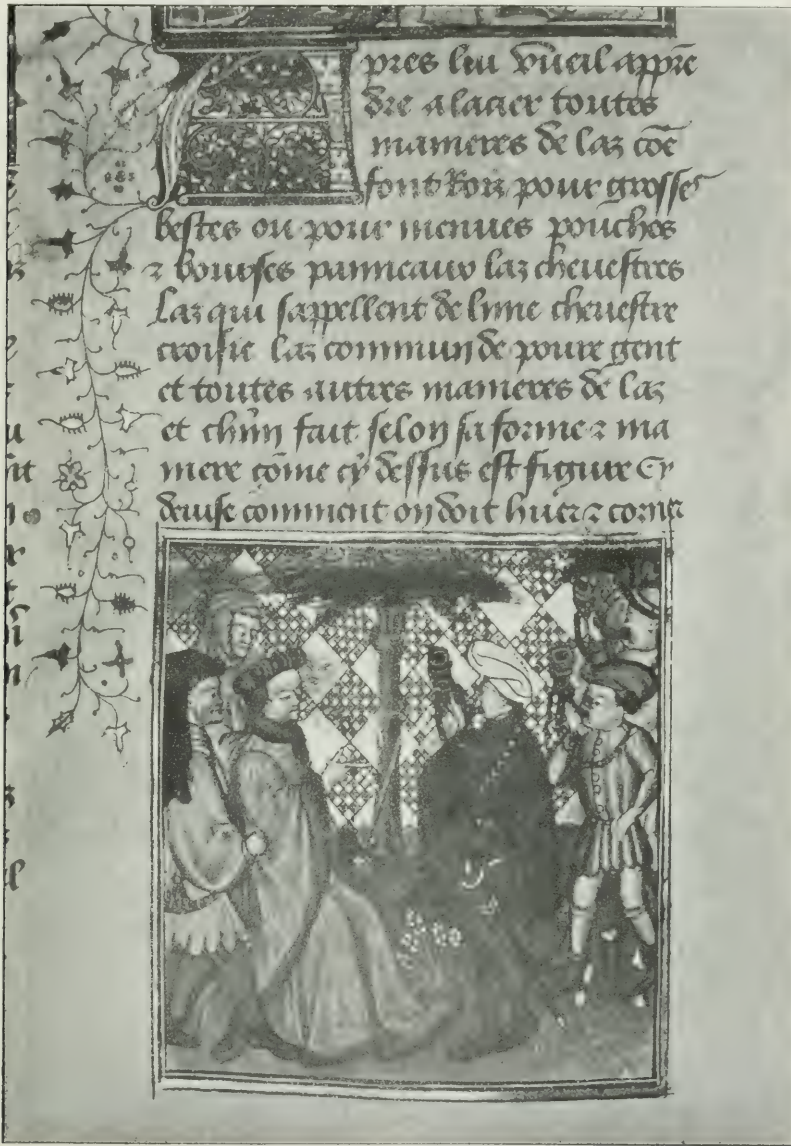 Apres lui vueil appre
dre a lacier toutes
manieres de laz coe
font Roiz pour grosses
bestes ou pour menues pouches
& bourses panneaux laz cheuestres
Laz qui sappellent de lune cheuestre
croisie laz commun de poure gent
et toutes autres manieres de laz
et chun fait selon sa forme & ma
niere come cy dessus est figure Cy
deuise comment on doit huer & corner